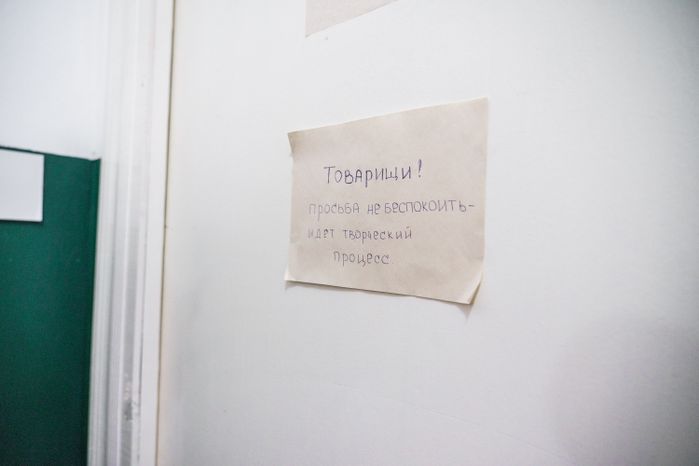 Товарищи!
просьба не беспокоить-
идет творческий
процесс.